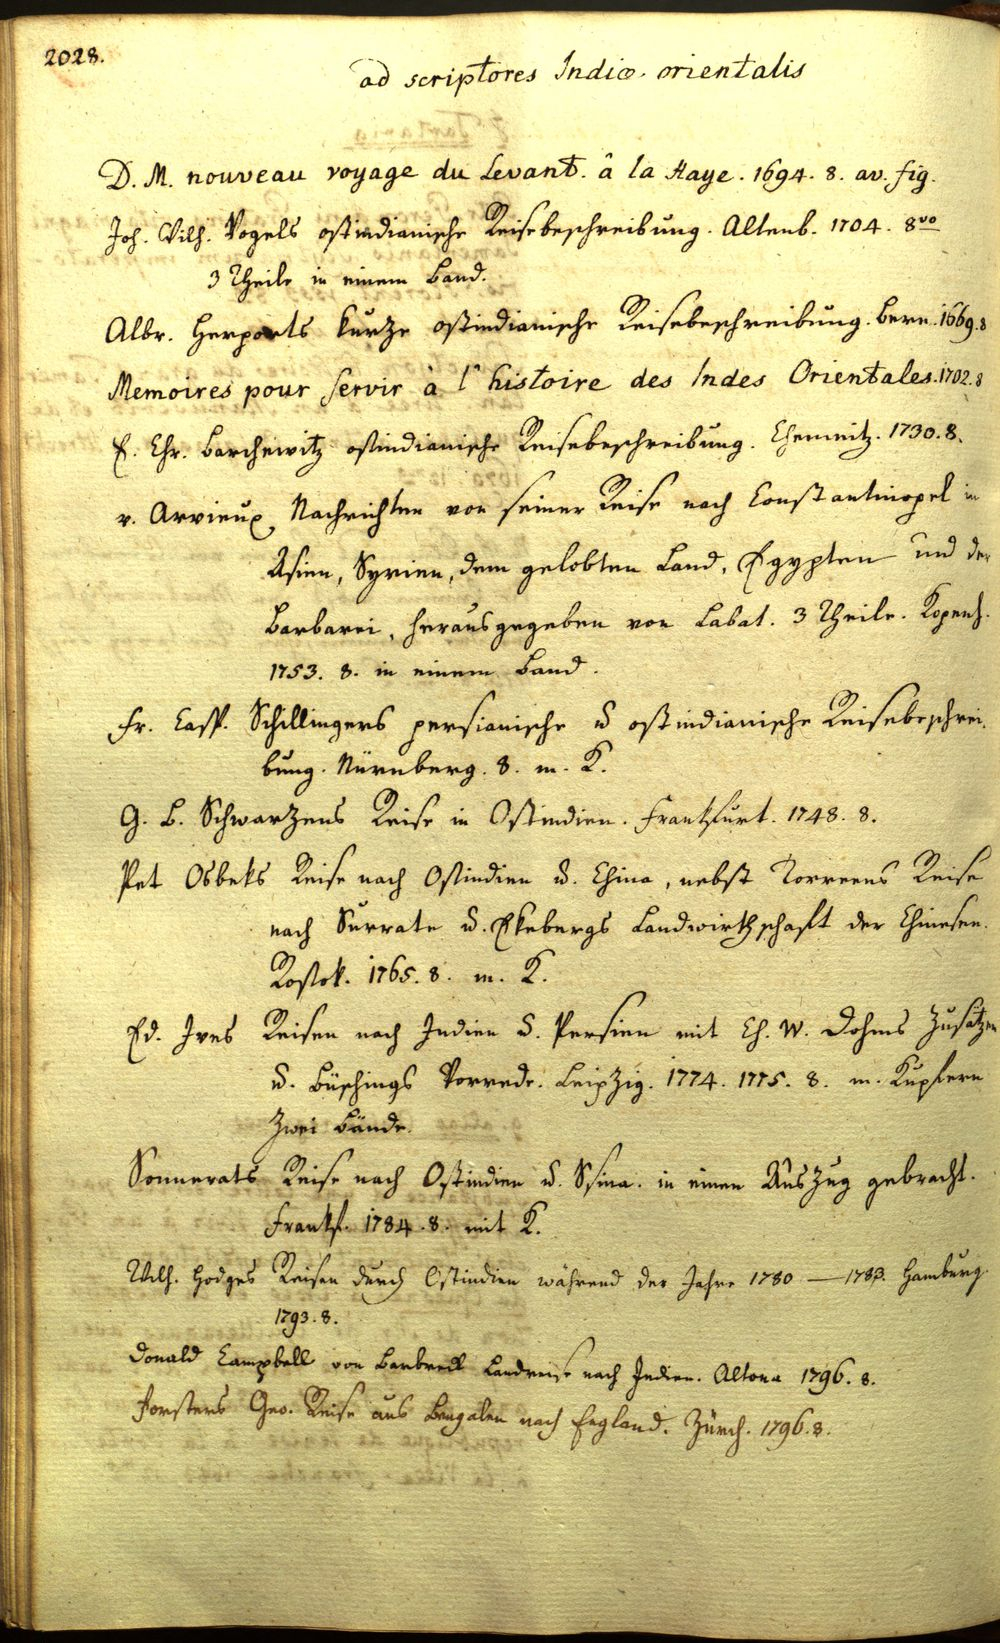 2028.
ad scriptores Indiæ orientalis
D. M. nouveau voyage du Levant. â la Haye. 1694. 8. av. fig.
Joh. Wilh. Vogels ostindianische Reisebeschreibung. Altenb. 1704. 8vo
3 Theile in einem Band.
Albr. Herports kurze ostindianische Reisebeschreibung. Bern. 1669. 8
Memoires pour servir à l'histoire des Indes Orientales. 1702. 8
E. Chr. Barchewitz ostindianische Reisebeschreibung. Chemnitz. 1730. 8.
v. Arvieux Nachrichten von seiner Reise nach Constantinopel in
Asien, Syrien, dem gelobten Land, Egypten und der
Barbarei, herausgegeben von Labat. 3 Theile. Kopenh.
1753. 8. in einem Band.
Fr. Casp. Schillingers persianische u ostindianische Reisebeschrei-
bung. Nürnberg. 8. m. K.
G. B. Schwarzens Reise in Ostindien. Frankfurt. 1748. 8.
Pet Osbeks Reise nach Ostindien u. China, nebst Torreens Reise
nach Surrate u. Ekebergs Landwirthschaft der Chinesen.
Rostok. 1765. 8. m. K.
Ed. Ives Reisen nach Indien u. Persien mit Ch. W. Dohms Zusätzen
u. Büschings Vorrede. Leipzig. 1774. 1775. 8. m. Kupfern
zwei Bände.
Sonnerats Reise nach Ostindien u. Ssina. in einen Auszug gebracht.
Frankf. 1784. 8. mit K.
Wilh. Hodges Reisen durch Ostindien während der Jahre 1780 — 1783. Hamburg.
1793. 8.
Donald Campbell von Barbreck Landreise nach Indien. Altona 1796. 8.
Forsters Geo. Reise aus Bengalen nach England. Zürch. 1796. 8.